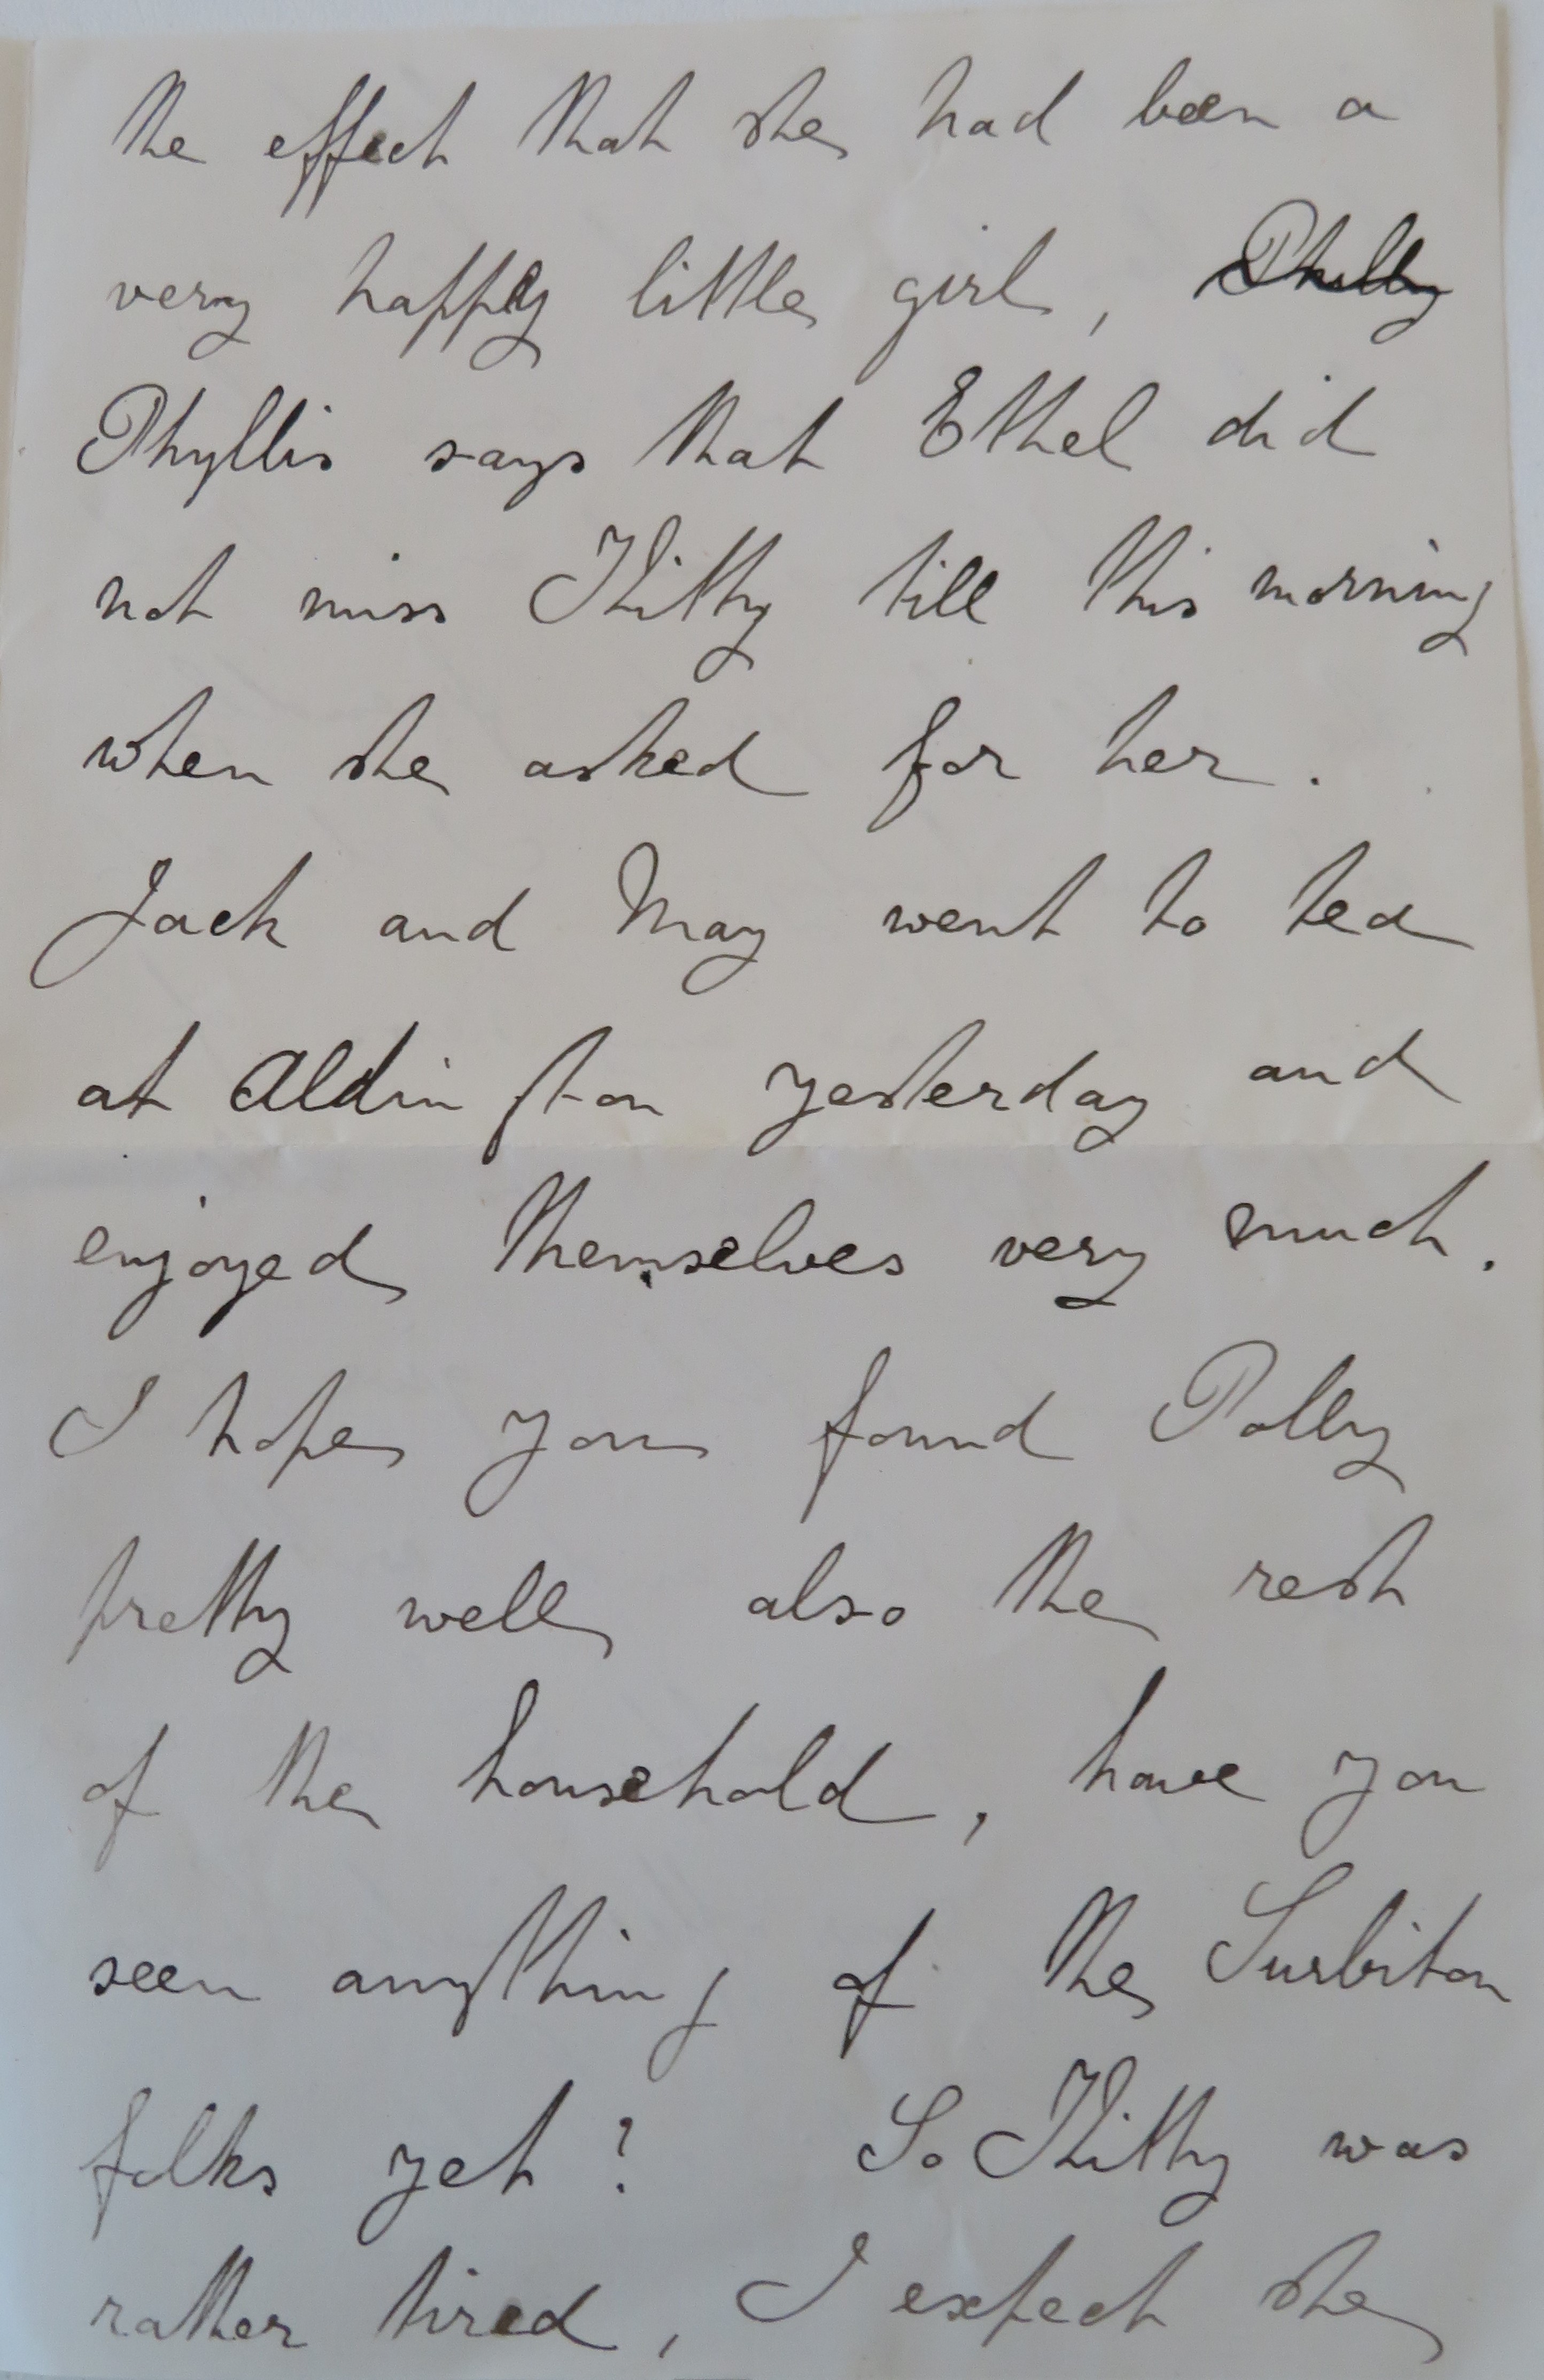 the effect that she had been a
very happy little girl, Philly
Phyllis says that Ethel did
not miss Kitty till this morning
when she asked for her.
Jack and May went to tea
at Aldington yesterday and
enjoyed themselves very much.
I hope you found Polly
pretty well also the rest
of the household, have you
seen anything of the Surbiton
folks yet? So Kitty was
rather tired, I expect she